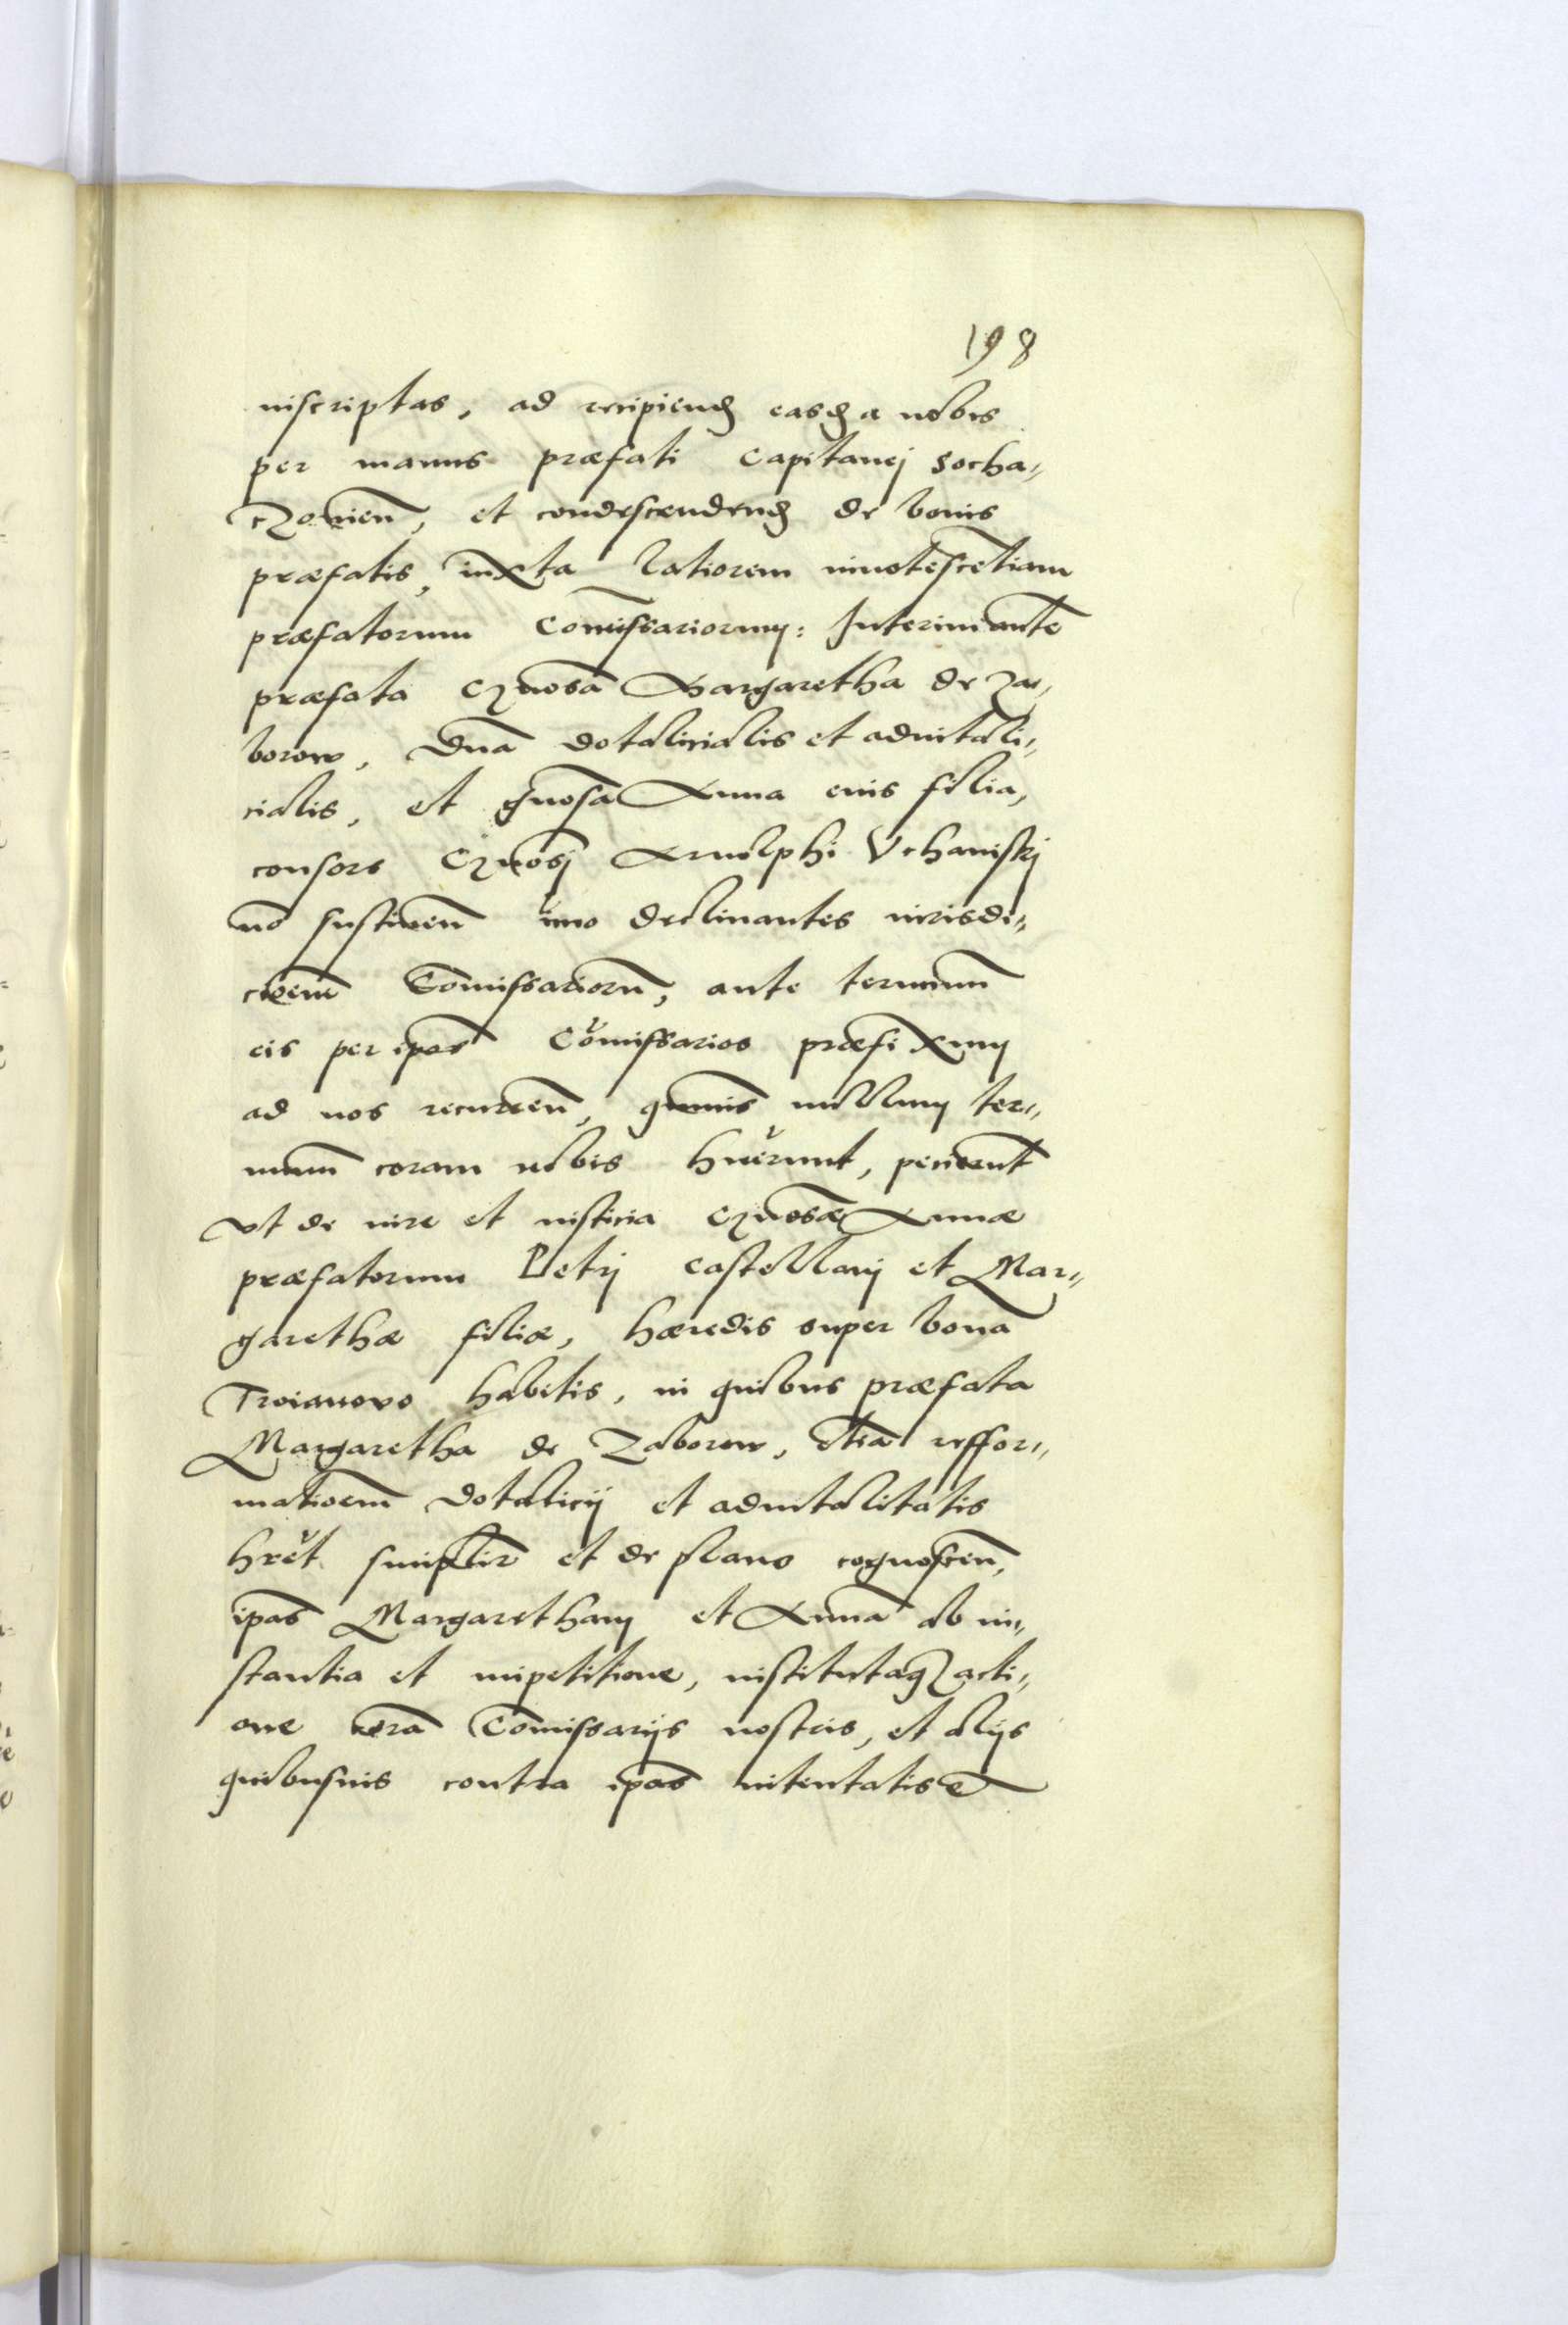 198
inscriptas, ad recipiend easd a nobis
per manus præfati Capitanej Socha„
czovien̄, et condescendend de bonis
præfatis, iuxta latiorem innotescētiam
præfatorum Com̄issariorum: Interim aut̄e
præfata Gn̄osa Margaretha de Za„
borow, Dn̄a dotalicialis et aduitali„
cialis, et gn̄osa Anna eius filia,
consors Gn̄osi Arnolphi Vchaniskj
nō sustinen̄ imo declinantes iurisdi„
ctioem̄ Com̄issariorū, ante terminum̄
eis per ip̄os Com̄issarios præfixum
ad nos recurren̄, quāuis nullum ter„
minum̄ coram nobis huerunt, petierunt̄
vt de iure et iusticia Gn̄osæ Annæ
præfatorum Petrj Castellanj et Mar„
garethæ filiæ, hæredis super bona
Troianovo habitis, in quibus præfata
Margaretha de Zaborow, etiā reffor„
matioem̄ dotalicij et aduitalitatis
hr̄et simplir̄ et de plano cognoscen̄,
ip̄as Margaretham et Annā ab in„
stantia et impetitione, institutaq acti„
one corā Com̄issarijs nostris, et alijs
quibusuis contra ip̄as intentatis et